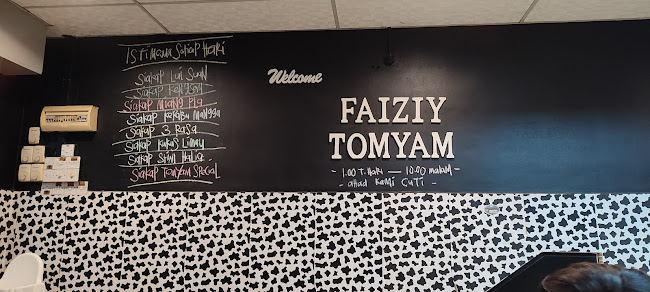 Istimewa Setiap Hari
Siakap Lui Suan
Siakap Kengsom
Siakap Miang Pla
Siakap Kerabu Mangga
Siakap 3 Rasa
Siakap Kukus Limau
Siakap Stim Halia
Siakap Tomyam Special
Welcome
FAIZIY
TOMYAM
- 1.00 T.Hari — 10.00 malam -
- Ahad Kami Cuti -